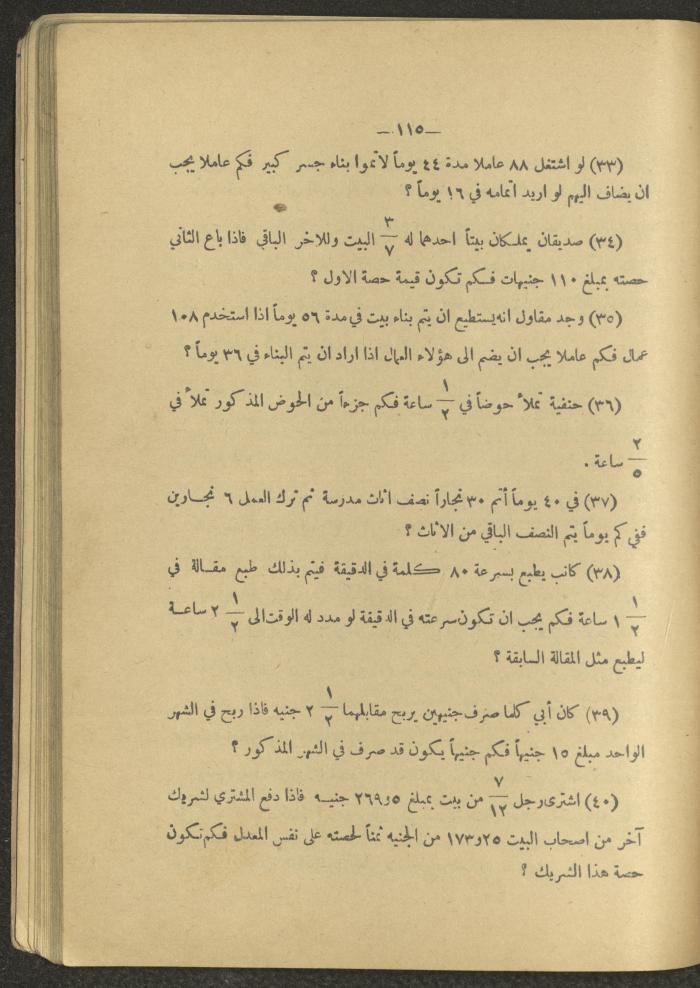 —١١٥—
(٣٣) لو اشتغل ٨٨ عاملا مدة ٤٤ يوماً لاتموا بناء جسر كبير فكم عاملا يجب
ان يضاف اليهم لو اريد اتمامه في ١٦ يوماً ؟
(٣٤) صديقان يملكان بيتاً احدهما له ٣/٧ البيت وللاخر الباقي فاذا باع الثاني
حصته بمبلغ ١١٠ جنيهات فكم تكون قيمة حصة الاول ؟
(٣٥) وجد مقاول انه يستطيع ان يتم بناء بيت في مدة ٥٦ يوماً اذا استخدم ١٠٨
عمال فكم عاملا يجب ان يضم الى هؤلاء العمال اذا اراد ان يتم البناء في ٣٦ يوماً ؟
(٣٦) حنفية تملأ حوضاً في ١/٢ ساعة فكم جزءاً من الحوض المذكور تملأ في
٢/٥ ساعة .
(٣٧) في ٤٠ يوماً أتم ٣٠ نجاراً نصف اثاث مدرسة ثم ترك العمل ٦ نجارين
ففي كم يوماً يتم النصف الباقي من الاثاث ؟
(٣٨) كاتب يطبع بسرعة ٨٠ كلمة في الدقيقة فيتم بذلك طبع مقالة في
١/٢ ١ ساعة فكم يجب ان تكون سرعته في الدقيقة لو مدد له الوقت الى ١/٢ ٢ ساعة
ليطبع مثل المقالة السابقة ؟
(٣٩) كان أبي كلما صرف جنيهين يربح مقابلهما ١/٢ ٢ جنيه فاذا ربح في الشهر
الواحد مبلغ ١٥ جنيهاً فكم جنيهاً يكون قد صرف في الشهر المذكور ؟
(٤٠) اشترى رجل ٧/١٢ من بيت بمبلغ ٢٦٩و٥ جنيه فاذا دفع المشتري لشريك
آخر من اصحاب البيت ١٧٣و٢٥ من الجنيه ثمناً لحصته على نفس المعدل فكم تكون
حصة هذا الشريك ؟